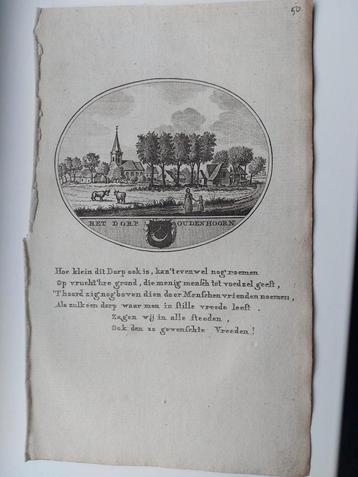 50
HET DORP OUDENHOORN.
Hoe klein dit Dorp ook is, kan't evenwel nog roemen
Op vruchtb're grond, die menig mensch tot voedzel geeft,
'T hoord zig nog boven dien door Menschen vrienden noemen,
Als zulk een dorp waar men in stille vrede leeft.
Zagen wij in alle steeden,
Ook den zo gewenschte Vreeden!